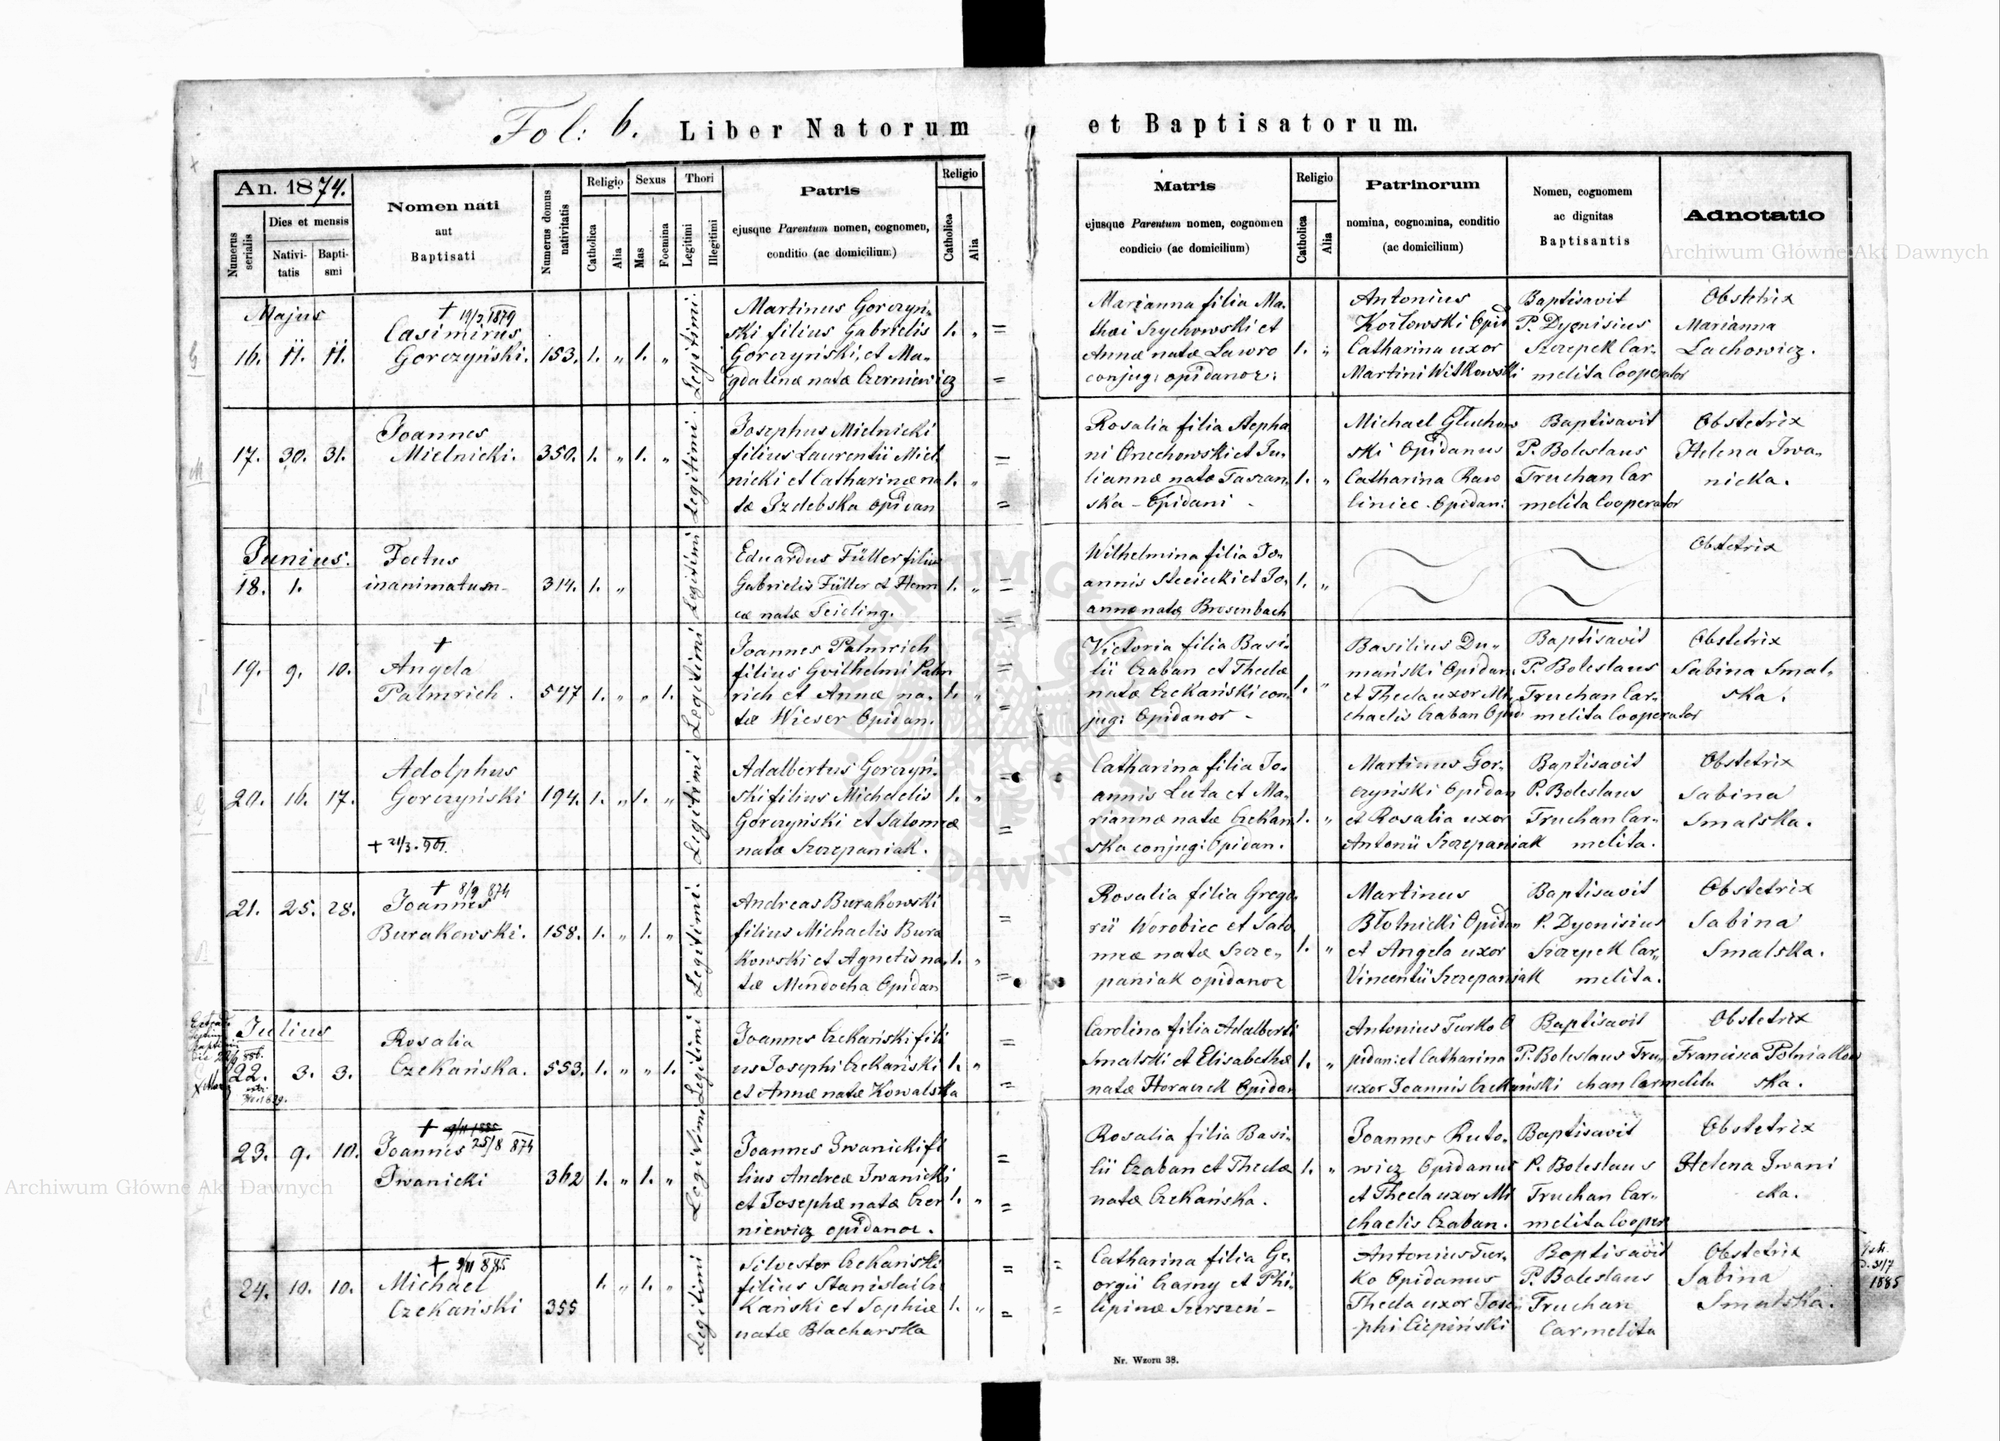 Fol: 6. Liber Natorum et Baptisatorum.
An. 1874.
Numerus serialis
Dies et mensis
Nativitatis
Baptismi
Nomen nati
aut
Baptisati
Numerus domus nativitatis
Religio
Catholica
Alia
Sexus
Mas
Foemina
Thori
Legitimi
Illegitimi
Patris
ejusque Parentum nomen, cognomen,
conditio (ac domicilium)
Religio
Catholica
Alia
Matris
ejusque Parentum nomen, cognomen
condicio (ac domicilium)
Religio
Catholica
Alia
Patrinorum
nomina, cognomina, conditio
(ac domicilium)
Nomen, cognomen
ac dignitas
Baptisantis
Adnotatio
Archiwum Główne Akt Dawnych
Majus
16. 11. 11.
† 19/2 1879
Casimirus
Gorczyński. 153. 1. „ 1. „
Legitimi.
Martinus Gorczyń-
ski filius Gabrielis
Gorczyński, et Ma-
gdalenæ natæ Czerniewicz
1. „
Marianna filia Ma-
thæi Szychowski et
Annæ natæ Lawro
conjug: opidanor:
1. „
Antonius
Kozłowski Opid
Catharina uxor
Martini Witkowski
Baptisavit
P. Dyonisius
Szczepek Car-
melita Cooperator
Obstetrix
Marianna
Lachowicz.
17. 30. 31.
Joannes
Mielnicki. 350. 1. „ 1. „
Legitimi.
Josephus Mielnicki
filius Laurentii Miel
nicki et Catharinæ na
tæ Izdebska Opidan
1. „
Rosalia filia Stepha
ni Oruchowski et Ju-
liannæ natæ Taszan
ska - Opidani -
1. „
Michael Gluchow
ski Opidanus
Catharina Raw
liniec. Opidan:
Baptisavit
P. Boleslaus
Truchan Car
melita Cooperator
Obstetrix
Helena Iwa-
nicka.
Junius.
18. 1.
Foetus
inanimatum- 314. 1. „
Legitimi
Eduardus Füller filius
Gabrielis Füller et Henri
cæ natæ Seidling.
1. „
Wilhelmina filia Jo-
annis Steciucki et Jo-
annæ natæ Bresenbach
1. „
Obstetrix
19. 9. 10.
†
Angela
Palmrich. 547 1. „ „ 1.
Legitimi
Joannes Palmrich
filius Gvilhelmi Palm
rich et Annæ na-
tæ Wieser Opidan.
1. „
Victoria filia Basi-
lii Czaban et Theclæ
natæ Czekański con-
jug: Opidanor -
1. „
Basilius Du-
mański Opidan
et Thecla uxor Mi-
chaelis Czaban Opid
Baptisavit
P. Boleslaus
Truchan Car-
melita Cooperator
Obstetrix
Sabina Smal-
ska.
20. 16. 17.
Adolphus
Gorczyński 194. 1. „ 1. „
† 21/3. 901.
Legitimi
Adalbertus Gorczyń-
ski filius Michaelis
Gorczyński et Salomeæ
natæ Szczepaniak.
1. „
Catharina filia Jo-
annis Luta et Ma-
riannæ natæ Czekan
ska conjug: Opidan.
1. „
Martinus Gor-
czyński Opidan
et Rosalia uxor
Antonii Szczepaniak
Baptisavit
P. Boleslaus
Truchan Car-
melita.
Obstetrix
Sabina
Smalska.
21. 25. 28.
† 8/9 874
Joannes
Burakowski. 158. 1. „ 1. „
Legitimi.
Andreas Burakowski
filius Michaelis Bura
kowski et Agnetis na-
tæ Mendocha Opidan
1. „
Rosalia filia Grego
rii Worobiec et Salo
meæ natæ Szcze-
paniak opidanor
1. „
Martinus
Błotnicki Opidan
et Angela uxor
Vincentii Szczepaniak
Baptisavit
P. Dyonisius
Szczepek Car-
melita.
Obstetrix
Sabina
Smalska.
Julius
22. 3. 3.
Rosalia
Czekańska. 553. 1. „ „ 1.
Legitimi
Joannes Czekański fili
us Josephi Czekański
et Annæ natæ Kowalska
1. „
Carolina filia Adalberti
Smalski et Elisabethæ
natæ Horaczek Opidan
1. „
Antonius Turko O
pidan: et Catharina
uxor Joannis Czekański
Baptisavit
P. Boleslaus Tru-
chan Carmelita
Obstetrix
Francisca Polniakow
ska.
23. 9. 10.
† 9/11 1885
Joannes 25/8 874
Iwanicki 362 1. „ 1. „
Legitimi
Joannes Iwanicki fi
lius Andreæ Iwanicki
et Josephæ natæ Czer
niewicz opidanor.
1. „
Rosalia filia Basi-
lii Czaban et Theclæ
natæ Czekańska.
1. „
Joannes Ruto-
wicz Opidanus
et Thecla uxor Mi
chaelis Czaban.
Baptisavit
P. Boleslaus
Truchan Car-
melita Cooper
Obstetrix
Helena Iwani
cka.
24. 10. 10.
† 9/11 885
Michael
Czekański 355 1. „ 1. „
Legitimi
Silvester Czekański
filius Stanislai Cze
kański et Sophiæ
natæ Blacharska
1. „
Catharina filia Ge-
orgii Czarny et Phi-
lipinæ Szerszeń -
Antonius Tur-
ko Opidanus
Thecla uxor Jose
phi Cicpiński
Baptisavit
P. Boleslaus
Truchan
Carmelita
Obstetrix
Sabina
Smalska.
1885
Nr. Wzoru 38.
Archiwum Główne Akt Dawnych